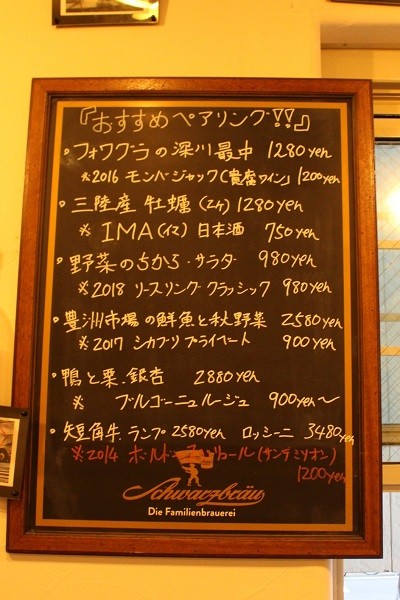 『おすすめペアリング!!』
・フォワグラの深川最中 1280yen
※2016 モンバジャック(貴腐ワイン) 1200yen
・三陸産 牡蠣(2ヶ) 1280yen
※ IMA(イマ) 日本酒 750yen
・野菜のちから・サラダ 980yen
※2018 リースリング クラッシック 980yen
・豊洲市場の鮮魚と秋野菜 2580yen
※2017 シャブリ プライベート 900yen
・鴨と栗.銀杏 2880yen
※ ブルゴーニュルージュ 900yen〜
・短角牛.ランプ2580yen ロッシーニ 3480yen
※2014 ボルドー (サンテミリオン)
1200yen
Schwarzbräu
Die Familienbrauerei